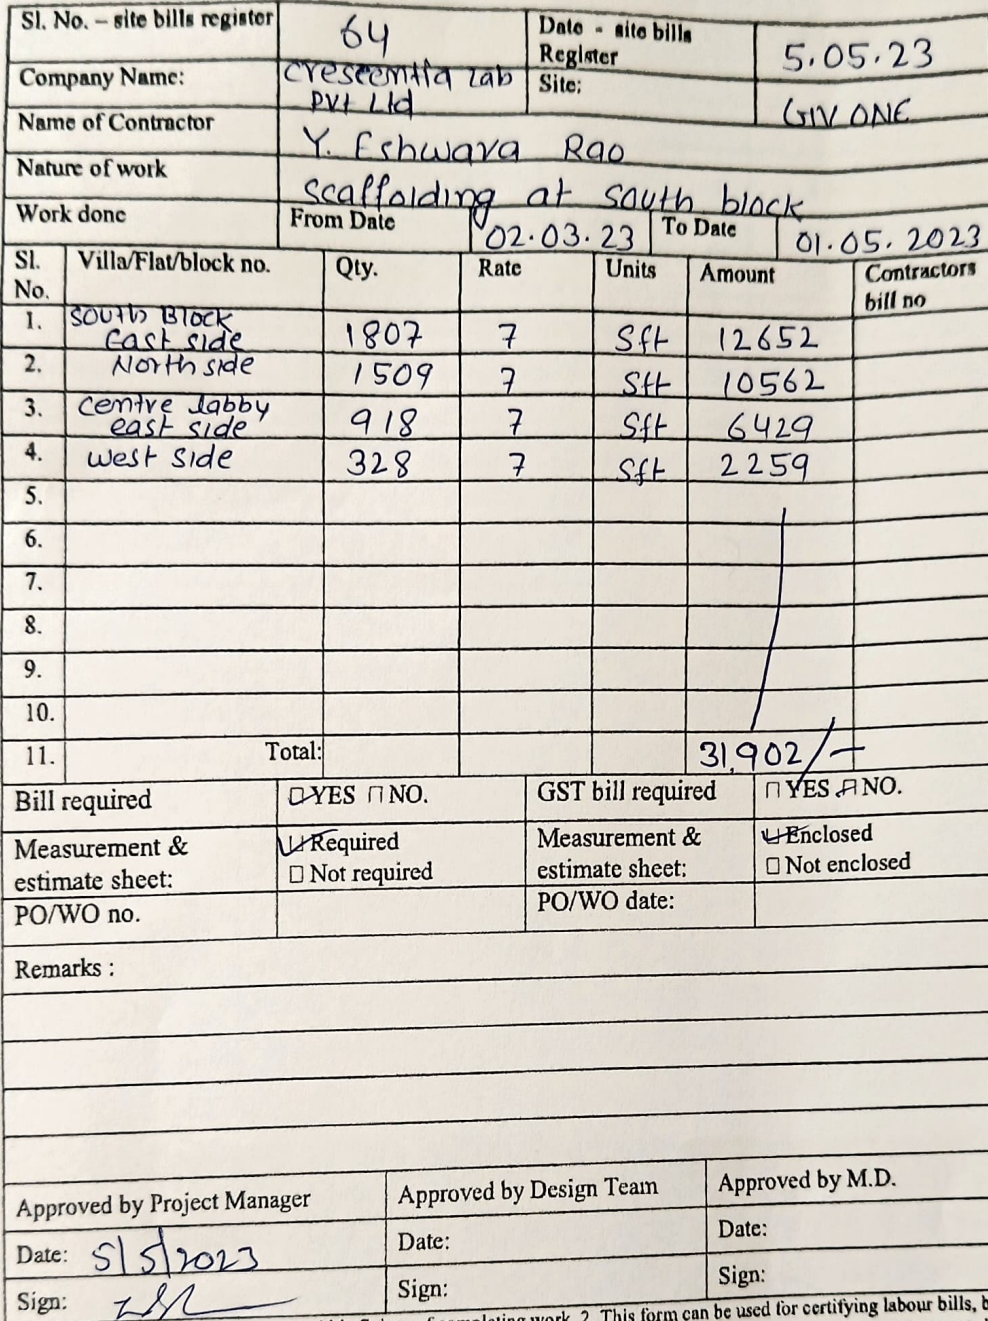 Sl. No. – site bills register 64 Date - site bills Register 5.05.23
Company Name: Creseemtia Lab Pvt Ltd Site: GIV ONE
Name of Contractor Y. Eshwara Rao
Nature of work Scaffolding at south block
Work done From Date 02.03.23 To Date 01.05.2023
Sl. No. Villa/Flat/block no. Qty. Rate Units Amount Contractors bill no
1. South Block East side 1807 7 Sft 12652
2. North side 1509 7 Sft 10562
3. Centre labby east side 918 7 Sft 6429
4. west side 328 7 Sft 2259
5.
6.
7.
8.
9.
10.
11. Total: 31,902/-
Bill required YES NO. GST bill required YES NO.
Measurement & estimate sheet: Required Not required Measurement & estimate sheet: Enclosed Not enclosed
PO/WO no. PO/WO date:
Remarks :
Approved by Project Manager Approved by Design Team Approved by M.D.
Date: 5/5/2023 Date: Date:
Sign: Sign: Sign:
work. 2. This form can be used for certifying labour bills, b